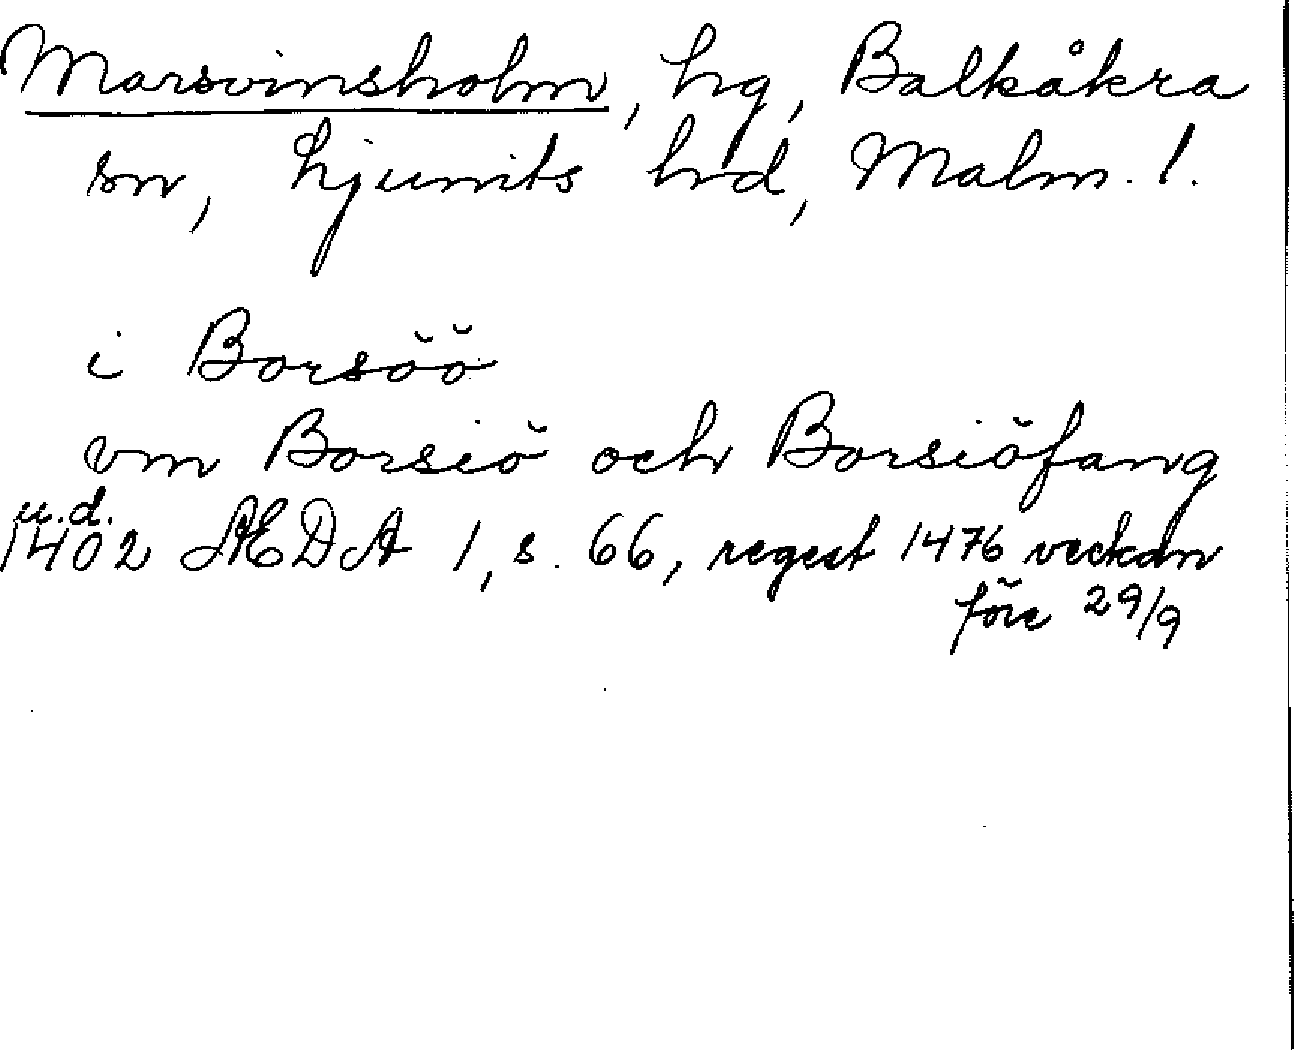 Marsvinsholm, hg, Balkåkra
sn, Ljunits hd, Malm. l.
i Borsöö
vm Borsiö och Borsiöfang
u.d.
1402 ÆDA 1, s. 66, regest 1476 veckan
före 29/9